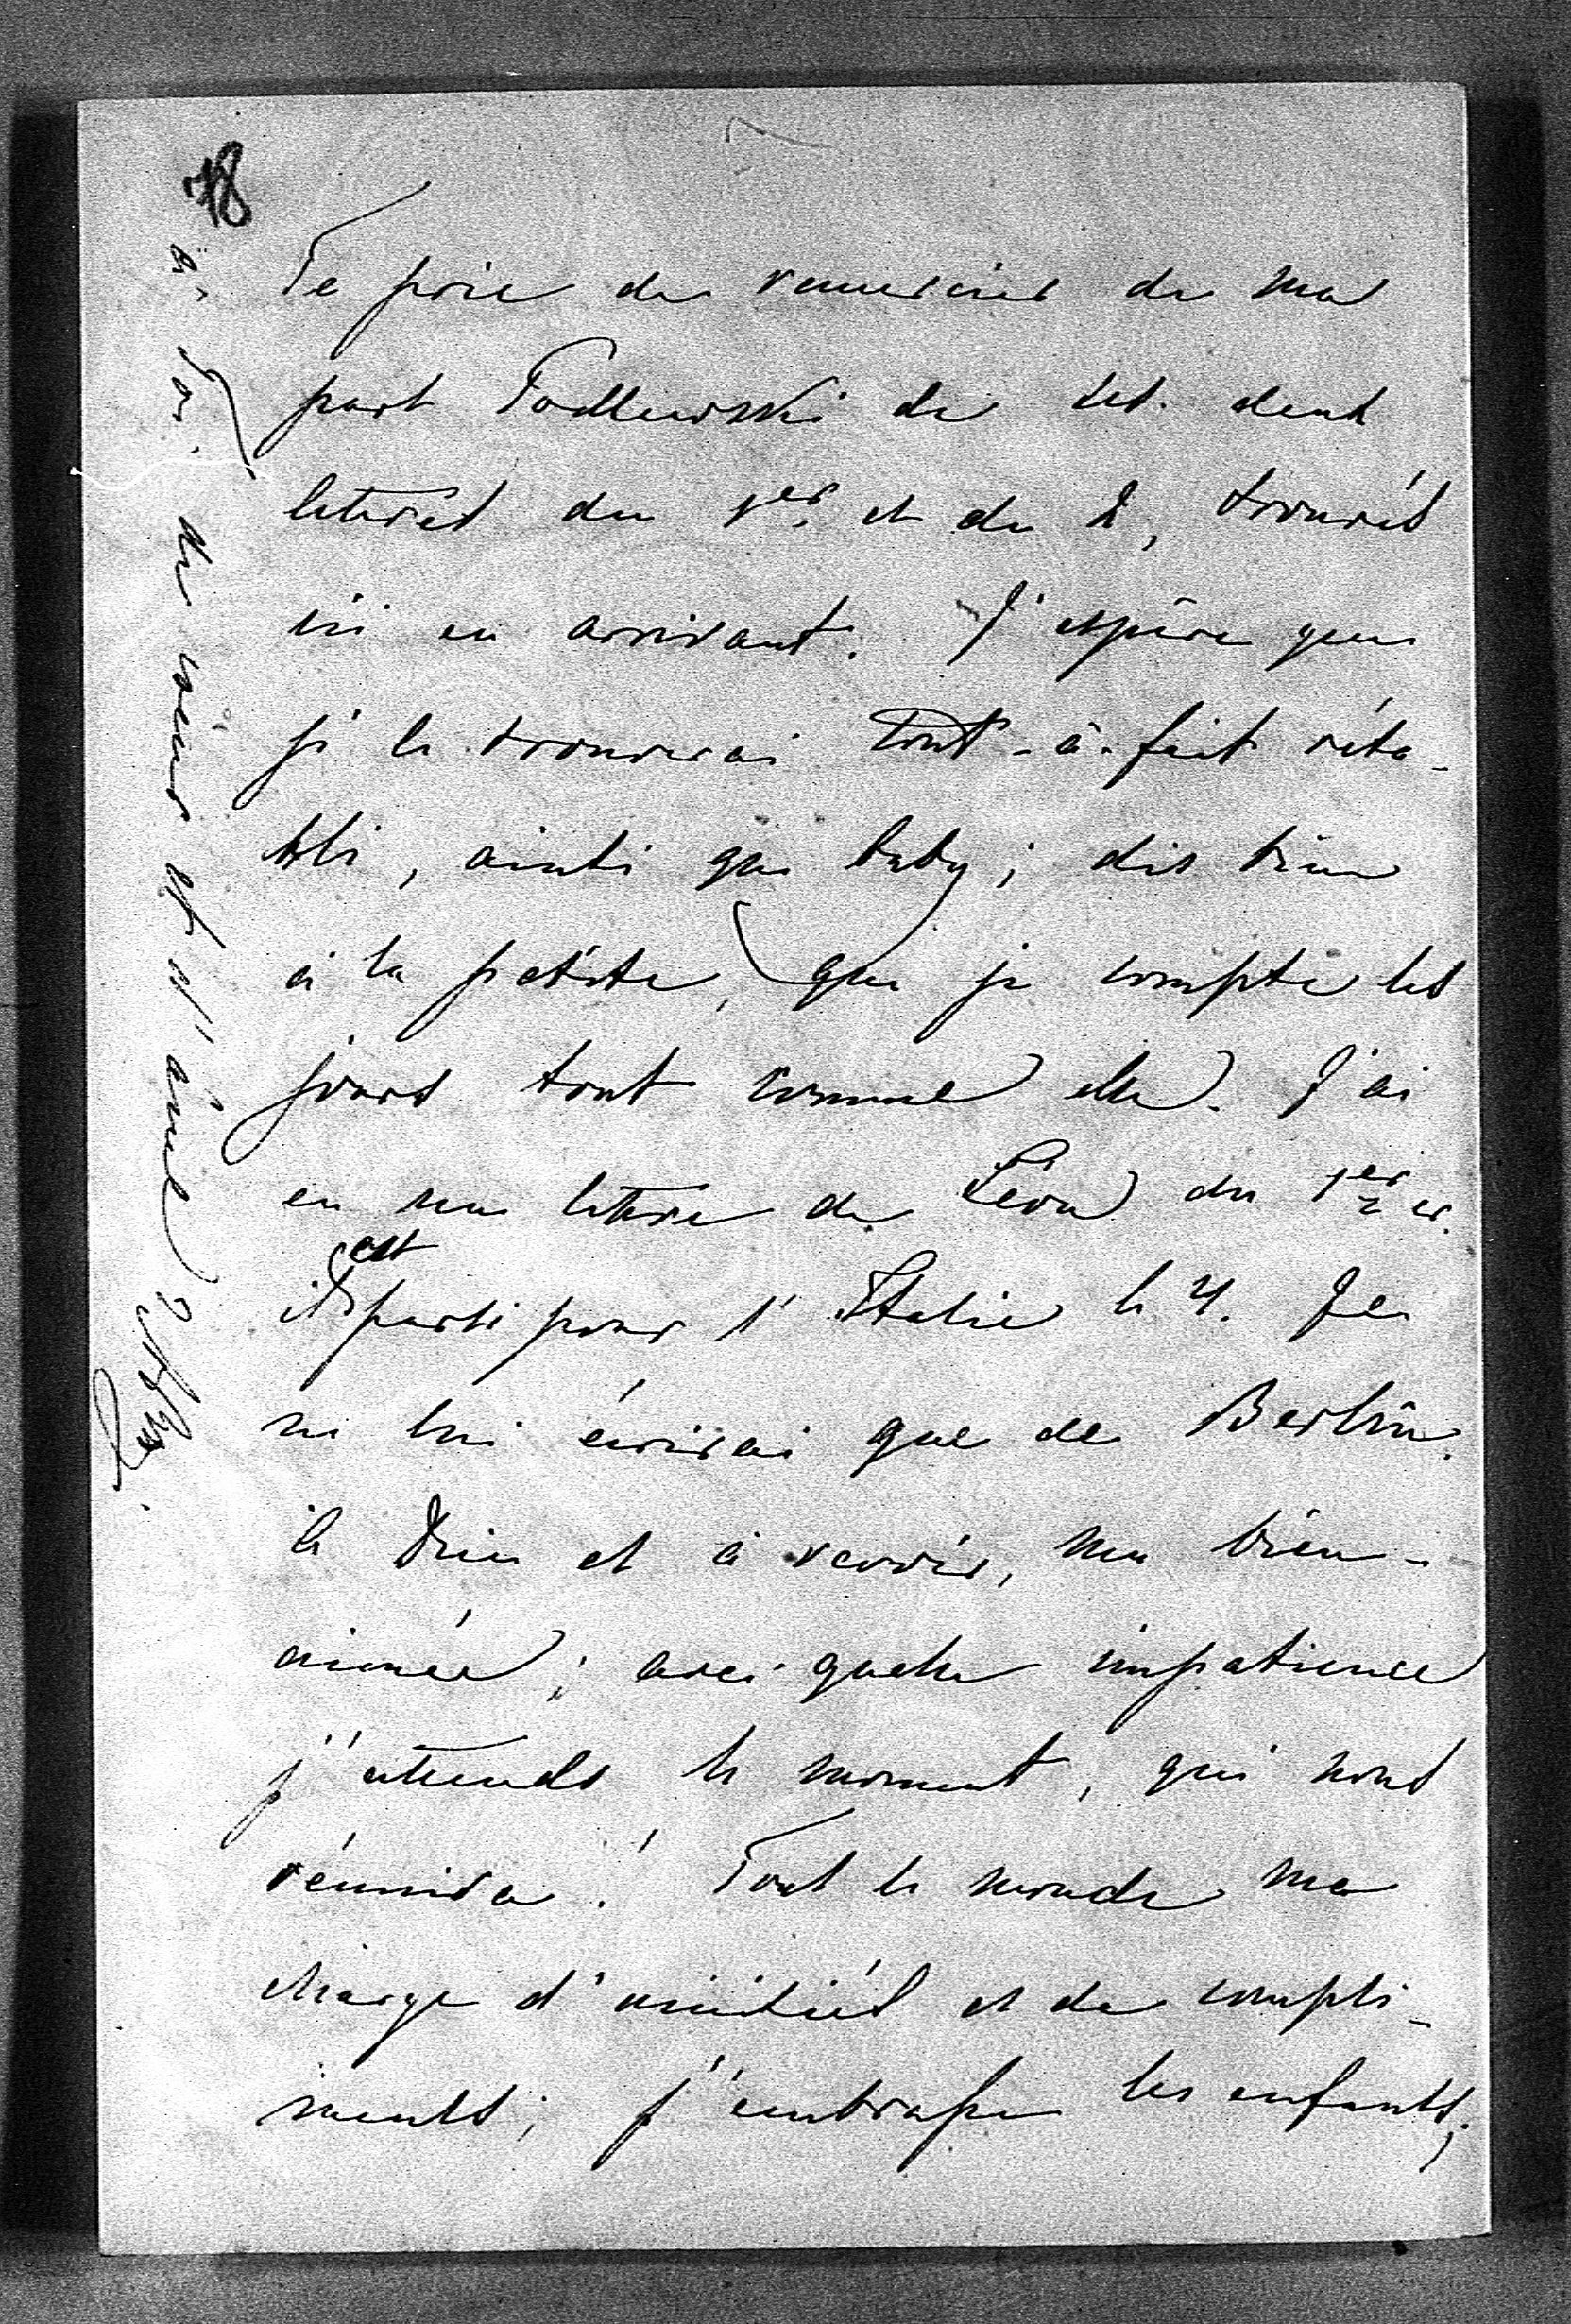 78
Te prie de remercier de ma
part Podlewski de ses deux
lettres du 1er et du 2, trouvés
ici en arrivant. J'espère que
je le trouverai tout-à-fait réta-
bli, ainsi que baby; dis bien
à la petite, que je compte les
jours tout comme elle. J'ai
eu une lettre de Léon du 1er
il est parti pour l'Italie le 4. Je
ne lui écrirai que de Berlin.
à Dieu et à revoir, ma bien-
aimée; avec quelle impatience
j'attends le moment, qui nous
réunira! Tout le monde me
charge d'amitiés et de compli-
ments; j'embrasse les enfants;
à toi de cœur et d'âme